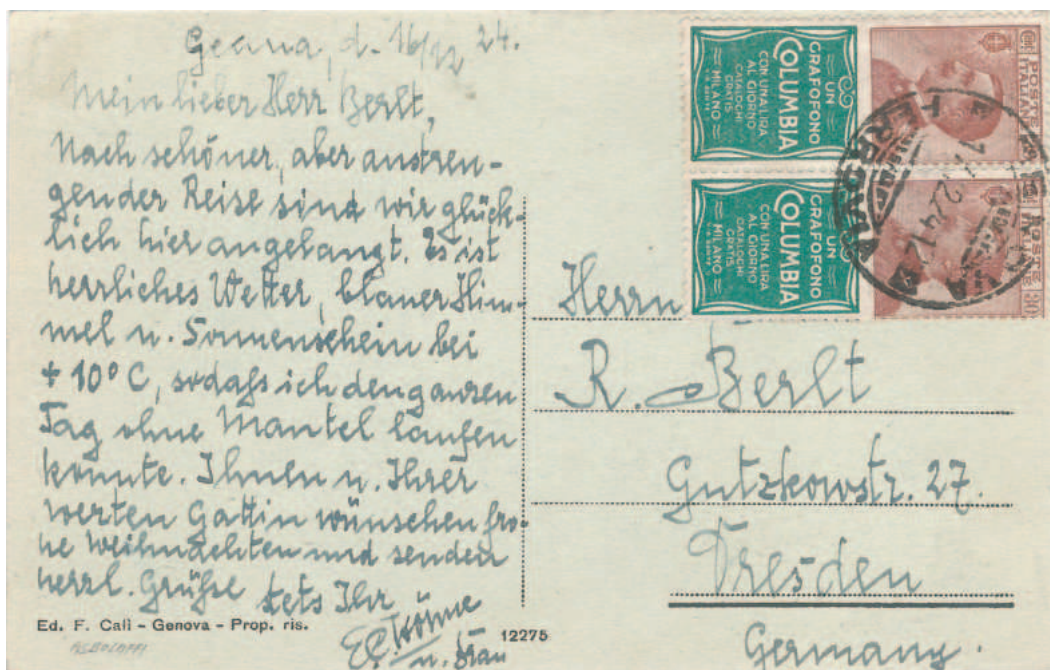 Genua, d. 16/12 24.
Mein lieber Herr Berlt,
Nach schöner, aber anstren-
gender Reise sind wir glück-
lich hier angelangt. Es ist
herrliches Wetter, blauer Him-
mel u. Sonnenschein bei
+ 10° C, sodaß ich den ganzen
Tag ohne Mantel laufen
konnte. Ihnen u. Ihrer
werten Gattin wünschen fro-
he Weihnachten und senden
herzl. Grüße stets Ihr
u. Frau
Ed. F. Cali - Genova - Prop. ris.
12275
UN
GRAFOFONO
COLUMBIA
CON UNA LIRA
AL GIORNO
CATALOGHI
GRATIS
MILANO
POSTE
ITALIANE
UN
GRAFOFONO
COLUMBIA
CON UNA LIRA
AL GIORNO
CATALOGHI
GRATIS
MILANO
POSTE
30
FERROVIA
Herrn
R. Berlt
Gutzkowstr. 27.
Dresden
Germany.